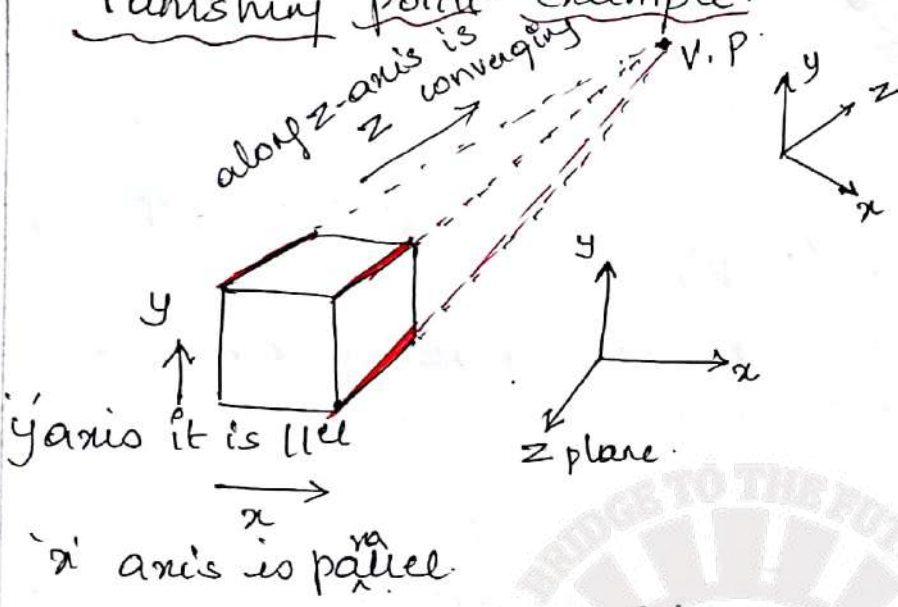 Vanishing point example.
along z-axis is
z converging
V.P.
y
z
x
y
x
z plane.
y
'y' axis it is ||el
x
'x' axis is parallel.
BRIDGE TO THE FUT